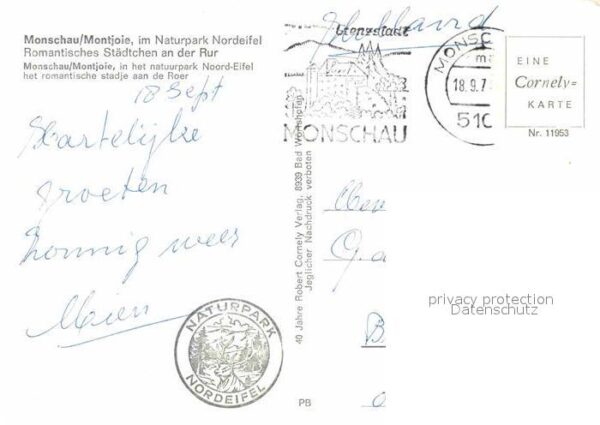 Monschau/Montjoie, im Naturpark Nordeifel
Romantisches Städtchen an der Rur
Monschau/Montjoie, in het natuurpark Noord-Eifel
het romantische stadje aan de Roer
18 Sept
Hartelijke
groeten
zonnig weer
Mien
NATURPARK
NORDEIFEL
40 Jahre Robert Cornely Verlag, 8939 Bad Wörishofen
Jeglicher Nachdruck verboten
PB
Holland
MONSCHAU
MONSC
18.9.7
510
EINE
Cornely-
KARTE
Nr. 11953
privacy protection
Datenschutz